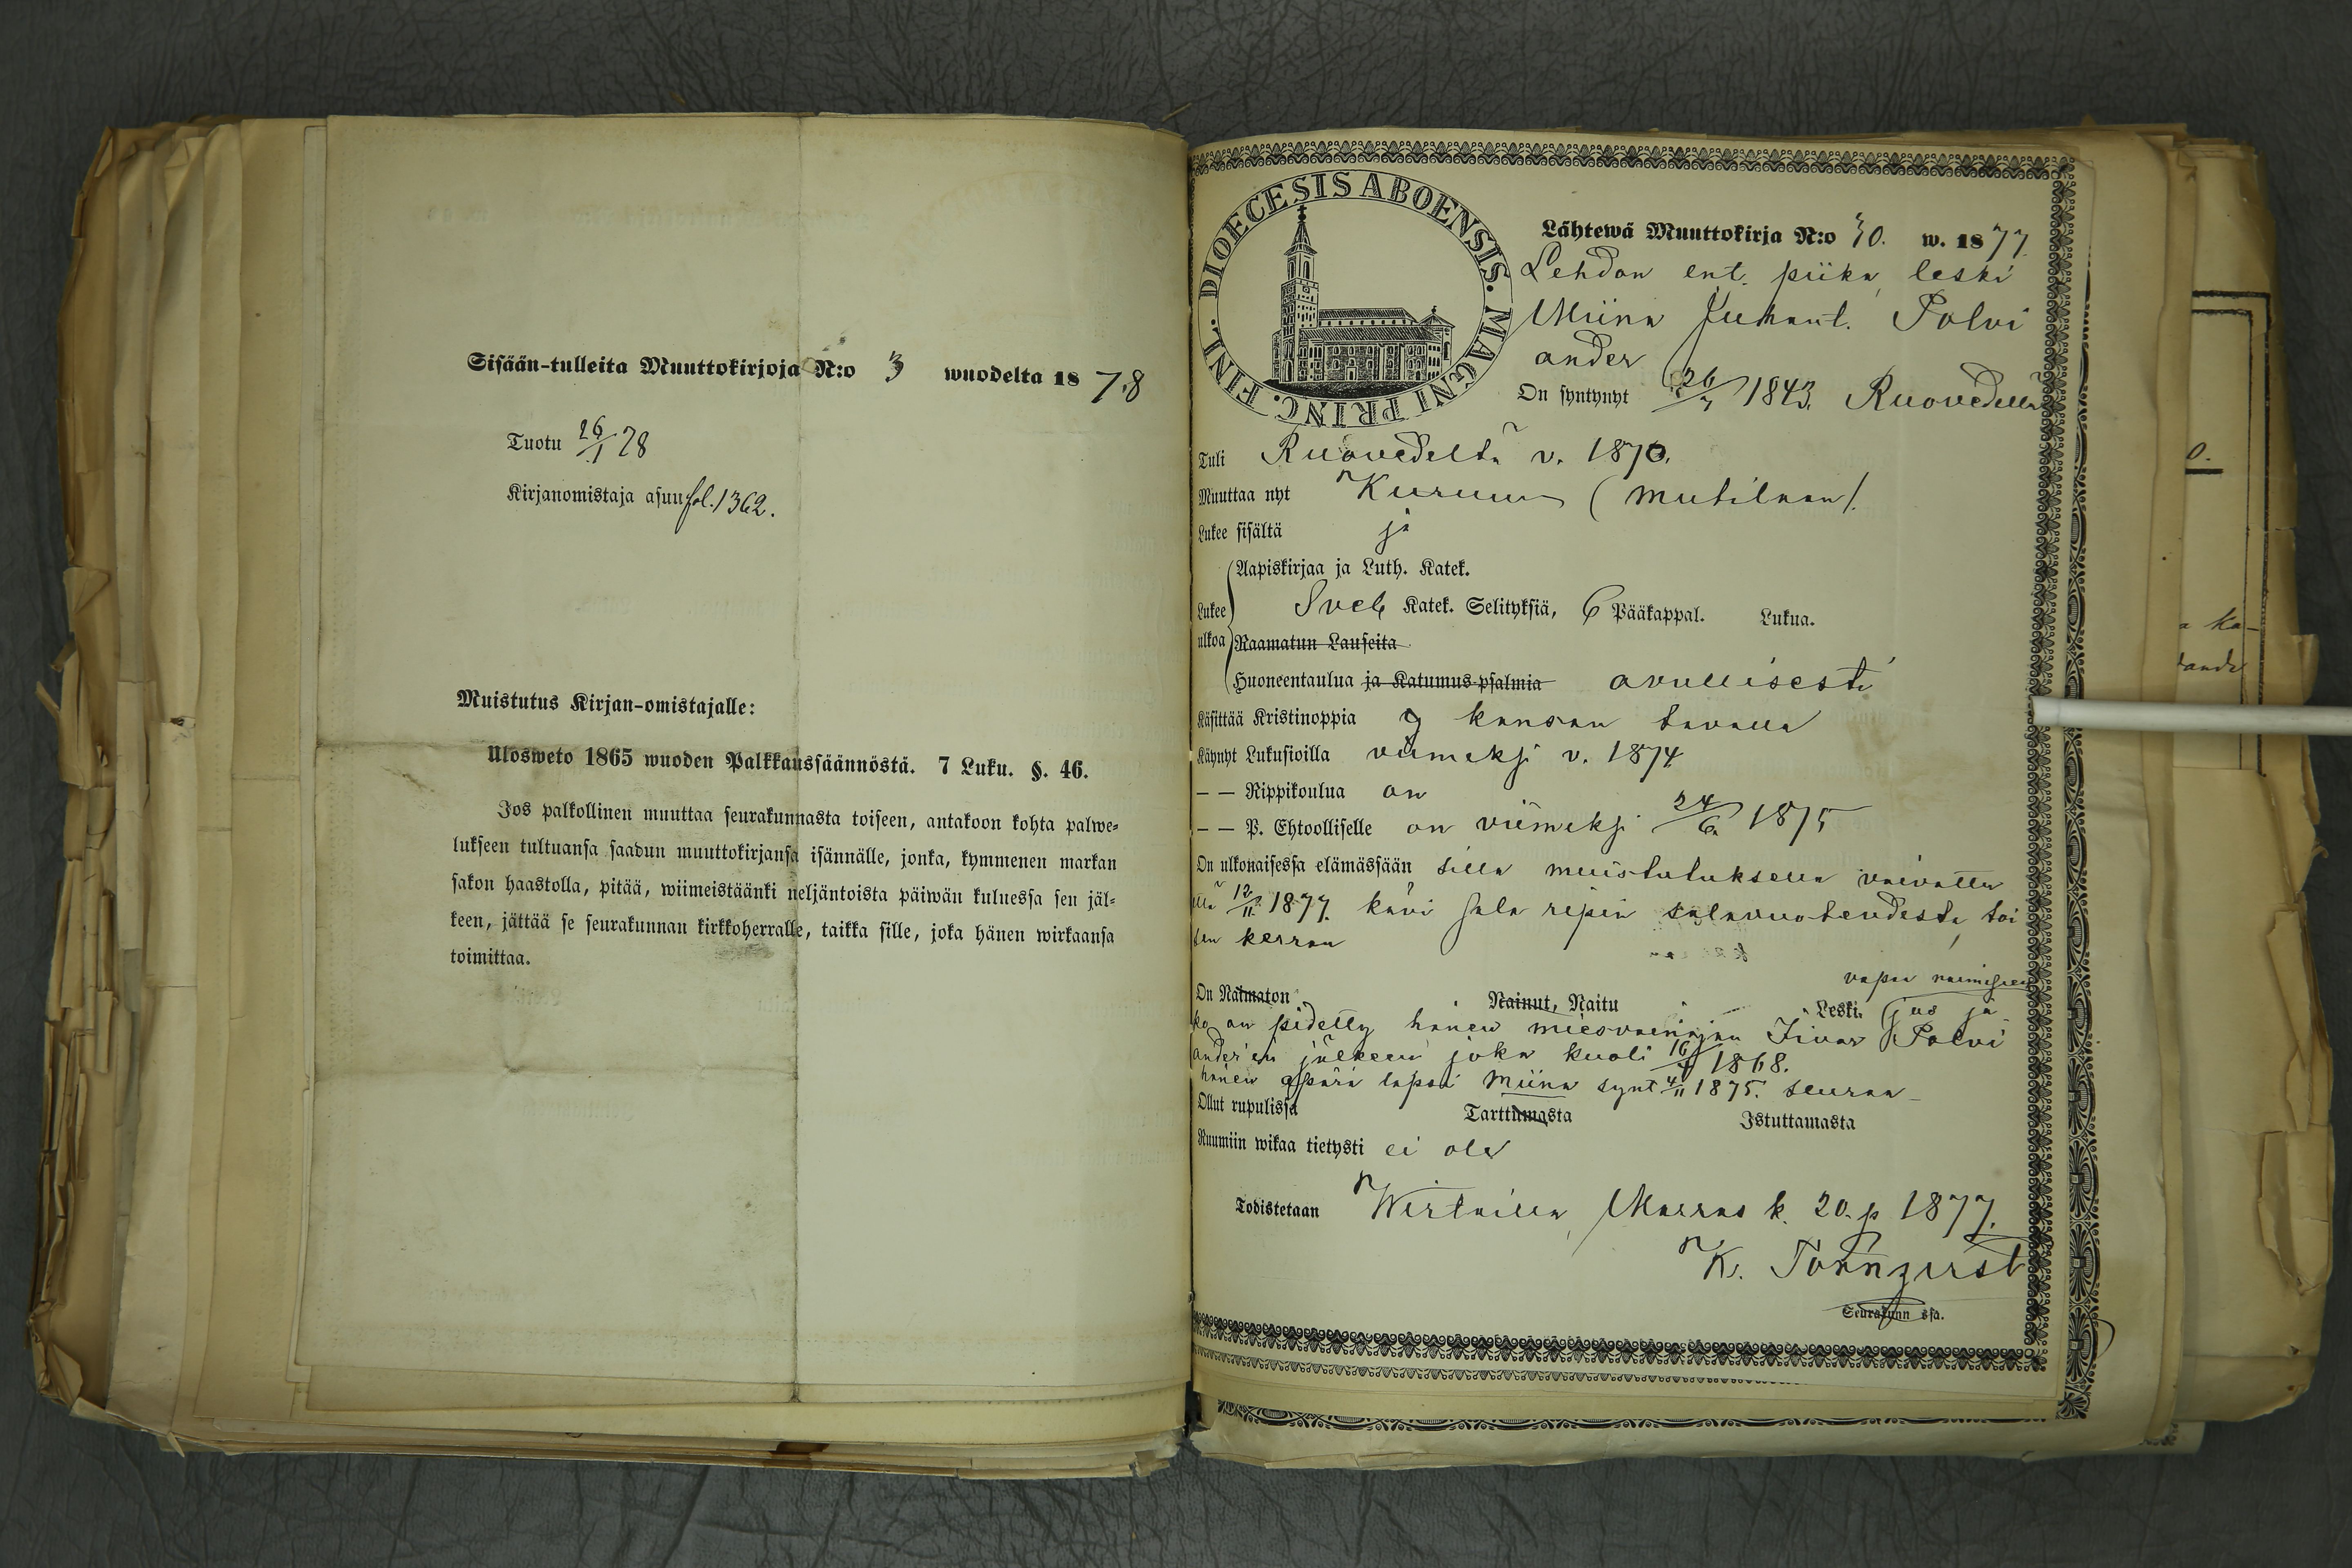 Sisään-tulleita Muuttokirjoja N:o 3 wuodelta 1878
Tuotu 26/1 78
Kirjanomistaja asuu fol. 1362.
Muistutus Kirjan-omistajalle:
Ulosweto 1865 wuoden Palkkaussäännöstä. 7 Luku. §. 46.
Jos palkollinen muuttaa seurakunnasta toiseen, antakoon kohta palwe-
lukseen tultuansa saadun muuttokirjansa isännälle, jonka, kymmenen markan
sakon haastolla, pitää, wiimeistäänki neljäntoista päiwän kuluessa sen jäl-
keen, jättää se seurakunnan kirkkoherralle, taikka sille, joka hänen wirkaansa
toimittaa.
DIOECESIS ABOENSIS. MAGNI PRINC. FINL.
Lähtewä Muuttokirja N:o 30. w. 1877.
Lehdon ent. piika, leski
Miina Juhant. Polvi
ander
On syntynyt 26/7 1843. Ruovedellä
Tuli Ruovedeltä v. 1870.
Muuttaa nyt Kuruun (mutilaan).
Lukee sisältä ja
Aapiskirjaa ja Luth. Katek.
Lukee Sveb Katek. Selityksiä, 6 Pääkappal. Lukua.
ulkoa Raamatun Lauseita
Huoneentaulua ja Katumus-psalmia avullisesti
Käsittää Kristinoppia kansan tavalla
Käynyt Lukusioilla viimeksi v. 1874
— — Rippikoulua on
— — P. Ehtoolliselle on viimeksi 24/6 1875
On ulkonaisessa elämässään sillä muistutuksella vaivattu
että 12/11 1877. kävi sala ripin salavuoteudesta, toi
sen kerran
vapaa naimiseen
On Naimaton Nainut, Naitu Leski, jos ja
ko on pidetty hänen miesvainajan Iivar Polvi
ander'en jälkeen joka kuoli 16/4 1868.
hänen äpärä lapsi Miina synt 4/11 1875. seuraa
Ollut rupulissa Tarttumasta Istuttamasta
Ruumiin wikaa tietysti ei ole
Todistetaan Wirtailla, Marras k. 20. p 1877.
K. Törnqvist
Seurakunn ssa.
0.
a ka-